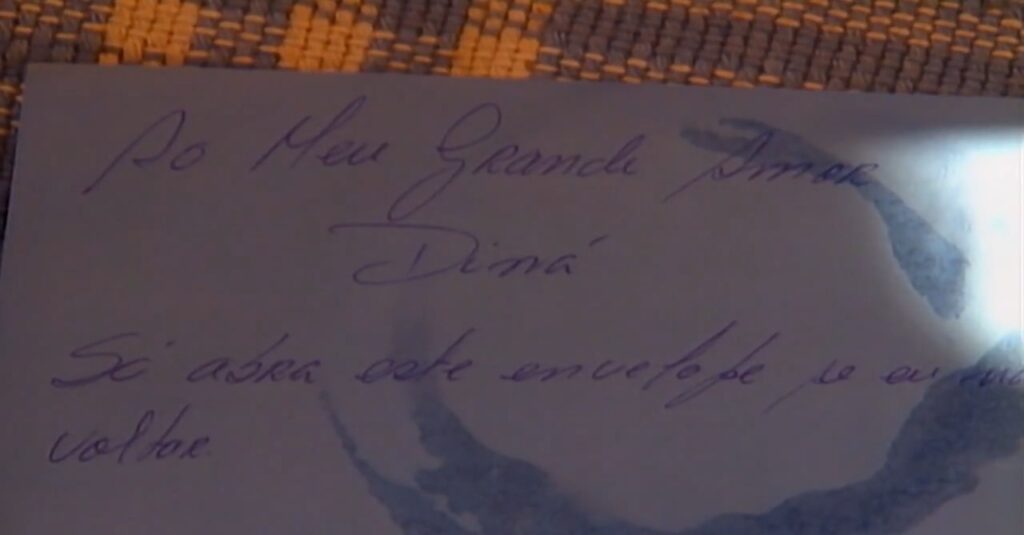 Ao Meu Grande Amor
Diná
Só abra este envelope se eu não
voltar